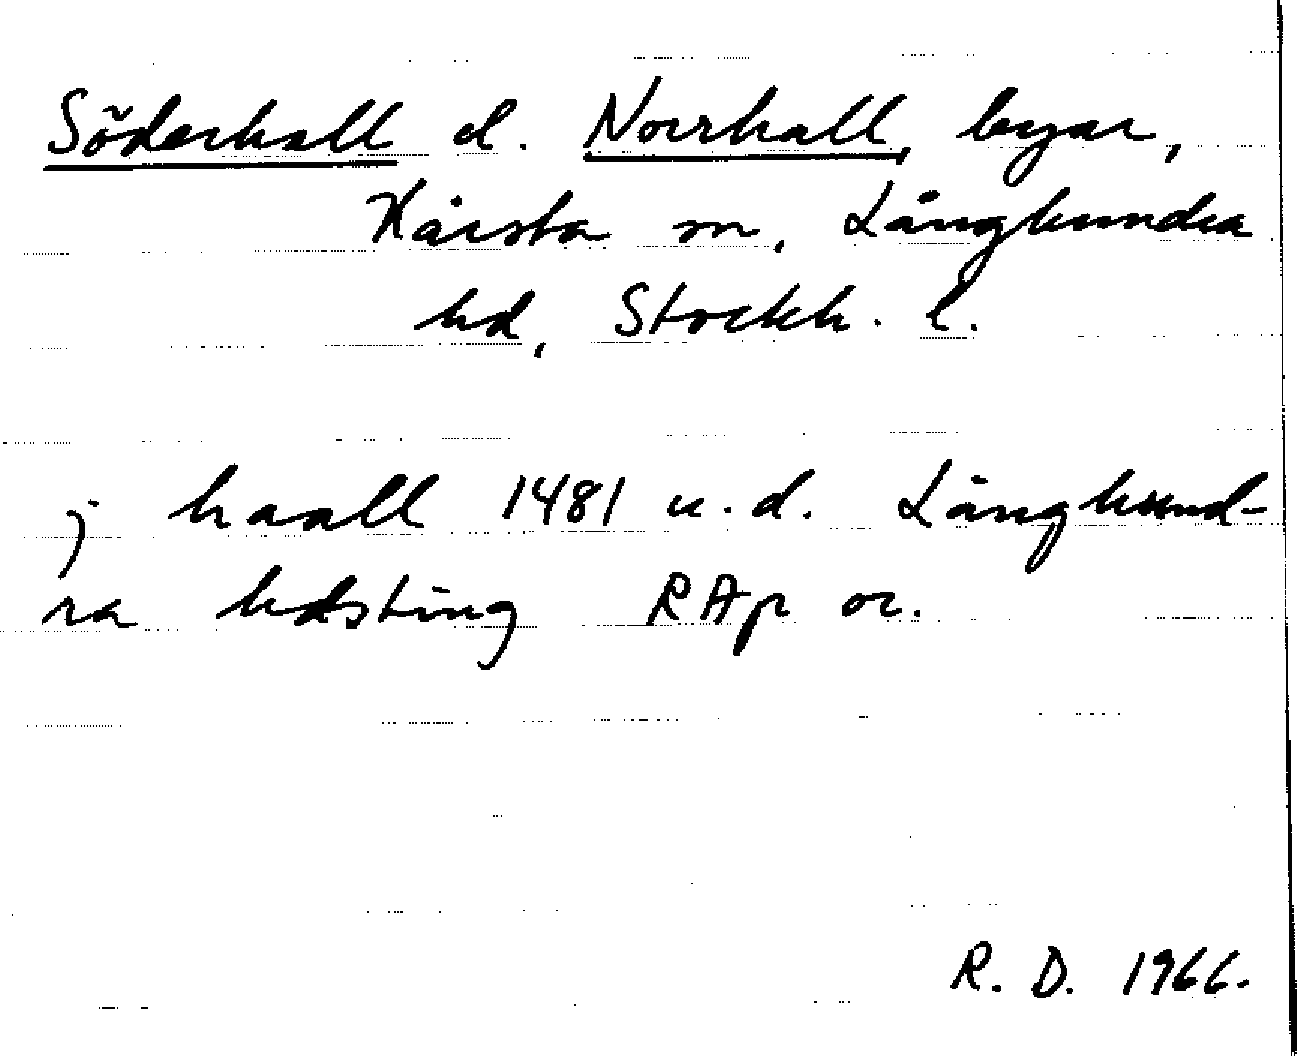 Söderhall el. Norrhall, byar,
Kårsta sn, Långhundra
hd, Stockh. l.
j haall 1481 u.d. Långhund-
ra hdsting RAp or.
R. D. 1966.